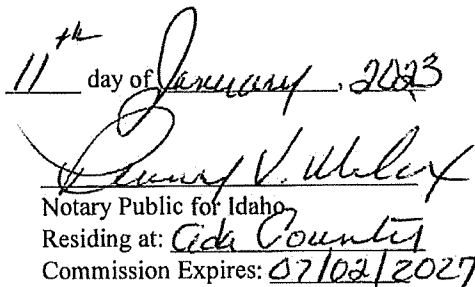 11th day of January, 2023
V.
Notary Public for Idaho
Residing at: Ada County
Commission Expires: 07/02/2027